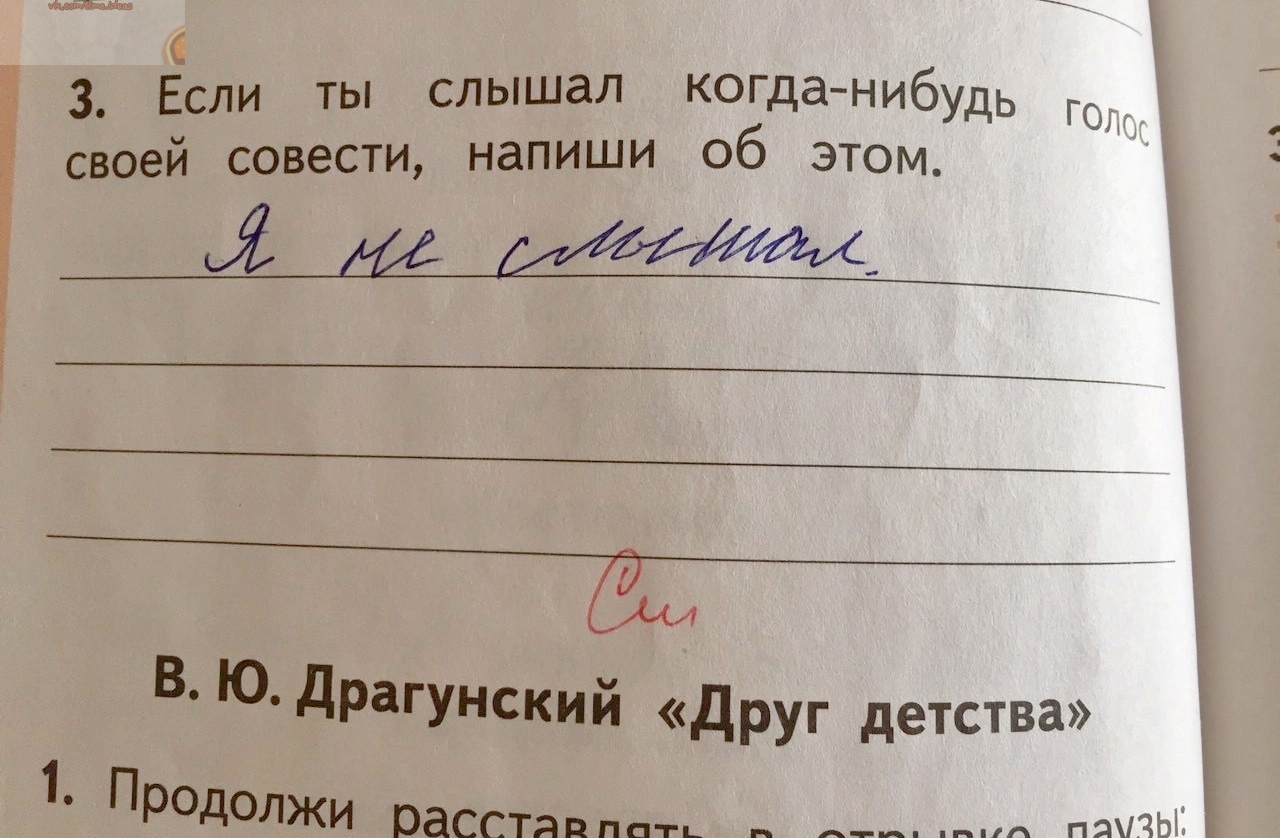 vk.com/lima.ideas
3. Если ты слышал когда-нибудь голос
своей совести, напиши об этом.
Я не слышал.
См
В. Ю. Драгунский «Друг детства»
1. Продолжи расставлять в отрывке паузы: